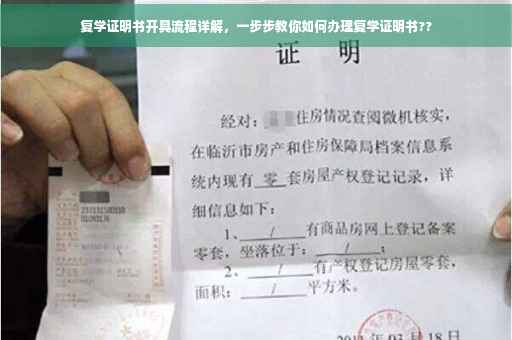 复学证明书开具流程详解，一步步教你如何办理复学证明书??
证 明
经对：住房情况查阅微机核实，
在临沂市房产和住房保障局档案信息系
统内现有 零 套房屋产权登记记录，详
细信息如下：
1、 / 有商品房网上登记备案
零套，坐落位于： / ；
2、 / 有产权登记房屋零套，
面积： / 平方米。